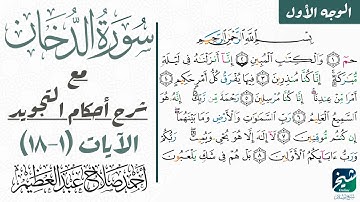 الوجه الأول
سورة الدخان
مع
شرح أحكام التجويد
الآيات (١-١٨)
أحمد صلاح عبد العظيم
بِسْمِ اللَّهِ الرَّحْمَٰنِ الرَّحِيمِ
حمٓ ۝١ وَالْكِتَابِ الْمُبِينِ ۝٢ إِنَّا أَنزَلْنَاهُ فِي لَيْلَةٍ
مُّبَارَكَةٍ ۚ إِنَّا كُنَّا مُنذِرِينَ ۝٣ فِيهَا يُفْرَقُ كُلُّ أَمْرٍ حَكِيمٍ ۝٤
أَمْرًا مِّنْ عِندِنَا ۚ إِنَّا كُنَّا مُرْسِلِينَ ۝٥ رَحْمَةً مِّن رَّبِّكَ ۚ إِنَّهُ هُوَ
السَّمِيعُ الْعَلِيمُ ۝٦ رَبِّ السَّمَاوَاتِ وَالْأَرْضِ وَمَا بَيْنَهُمَا ۖ
إِن كُنتُم مُّوقِنِينَ ۝٧ لَا إِلَٰهَ إِلَّا هُوَ يُحْيِي وَيُمِيتُ ۖ رَبُّكُمْ
وَرَبُّ آبَائِكُمُ الْأَوَّلِينَ ۝٨ بَلْ هُمْ فِي شَكٍّ يَلْعَبُونَ